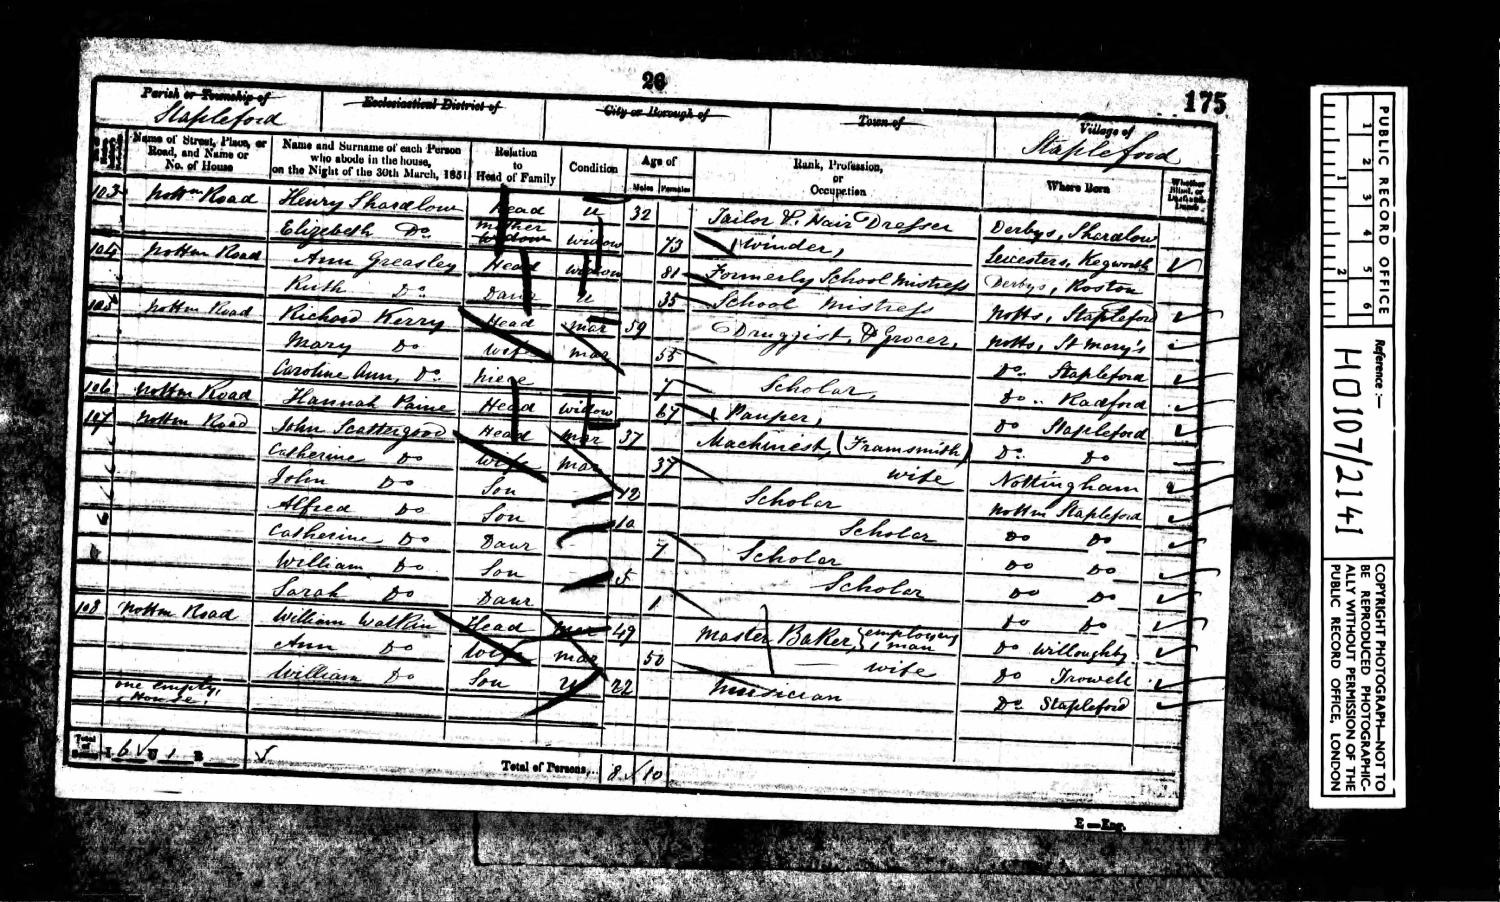 26
175
Parish or Township of
Stapleford
Ecclesiastical District of
City or Borough of
Town of
Village of
Stapleford
Name of Street, Place, or Road, and Name or No. of House
Name and Surname of each Person who abode in the house, on the Night of the 30th March, 1851
Relation to Head of Family
Condition
Age of
Males Females
Rank, Profession, or Occupation
Where Born
Whether Blind, or Deaf-and-Dumb
103 Nottm Road Henry Shardlow Head U 32 Tailor & Hair Dresser Derbys, Shardlow
Elizabeth Do Mother Widow Widow 73 Winder, Leicesters, Kegworth
104 Nottm Road Ann Greasley Head Widow 81 Formerly School Mistress Derbys, Roston
Ruth Do Daur U 35 School Mistress Notts, Stapleford
105 Nottm Road Richard Kerry Head Mar 59 Druggist & Grocer, Notts, St Mary's
Mary Do Wife Mar 55 Do Stapleford
Caroline Ann, Do Niece 7 Scholar, Do Radford
106 Nottm Road Hannah Paine Head Widow 67 Pauper, Do Stapleford
107 Nottm Road John Scattergood Head Mar 37 Machinest, (Framsmith) Do Do
Catherine Do Wife Mar 37 Wife Nottingham
John Do Son 12 Scholar Nottm Stapleford
Alfred Do Son 10 Scholar Do Do
Catherine Do Daur 7 Scholar Do Do
William Do Son 5 Scholar Do Do
Sarah Do Daur 1 Do Do
108 Nottm Road William Watkin Head Mar 49 Master Baker, employing 1 man Do Willoughby
Ann Do Wife Mar 50 Wife Do Trowell
William Do Son U 22 Musician Do Stapleford
one empty, House.
Total of Houses I 6 U 1 B
Total of Persons... 8 10
E—Eng.
PUBLIC RECORD OFFICE
1 2 3 4 5 6
1 2
Reference:—
HO 107/2141
COPYRIGHT PHOTOGRAPH—NOT TO
BE REPRODUCED PHOTOGRAPHIC-
ALLY WITHOUT PERMISSION OF THE
PUBLIC RECORD OFFICE, LONDON